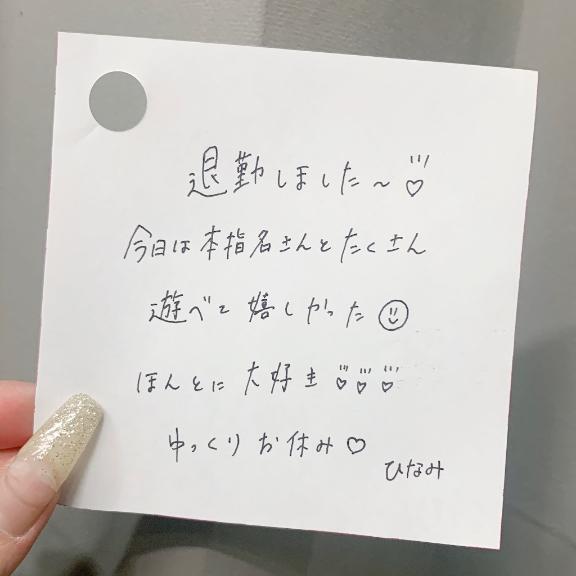 退勤しました〜♡
今日は本指名さんとたくさん
遊べて嬉しかった☺
ほんとに大好き♡♡♡
ゆっくりお休み♡
ひなみ